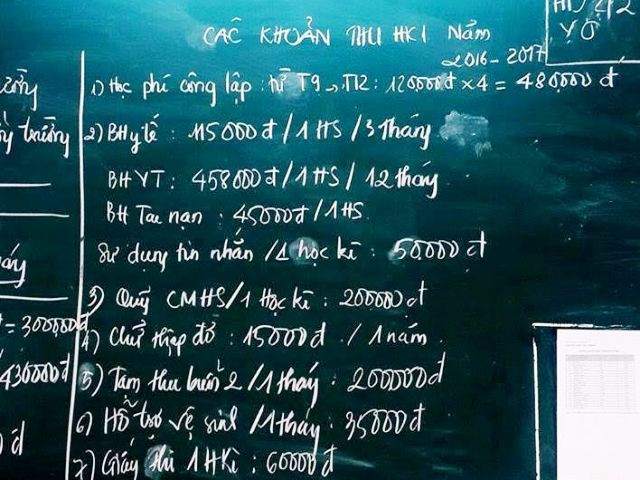 CÁC KHOẢN THU HKI Năm
2016-2017
1) Học phí công lập: từ T9→T12: 120000đ x 4 = 480,000 đ
2) BH y tế : 115000đ / 1 HS / 3 tháng
BHYT: 458000đ / 1 HS / 12 tháng
BH Tai nạn : 45000đ / 1HS
Sử dụng tin nhắn / 1 học kì : 50,000 đ
3) Quỹ CMHS / 1 Học kì : 200000 đ
4) Chữ thập đỏ : 15000đ / 1 năm
5) Tạm thu buổi 2 / 1 tháng : 200000đ
6) Hỗ trợ vệ sinh / 1 tháng : 35000đ
7) Giấy thi 1 HKì : 60000đ
trường
= 300,000đ
430000đ
đ